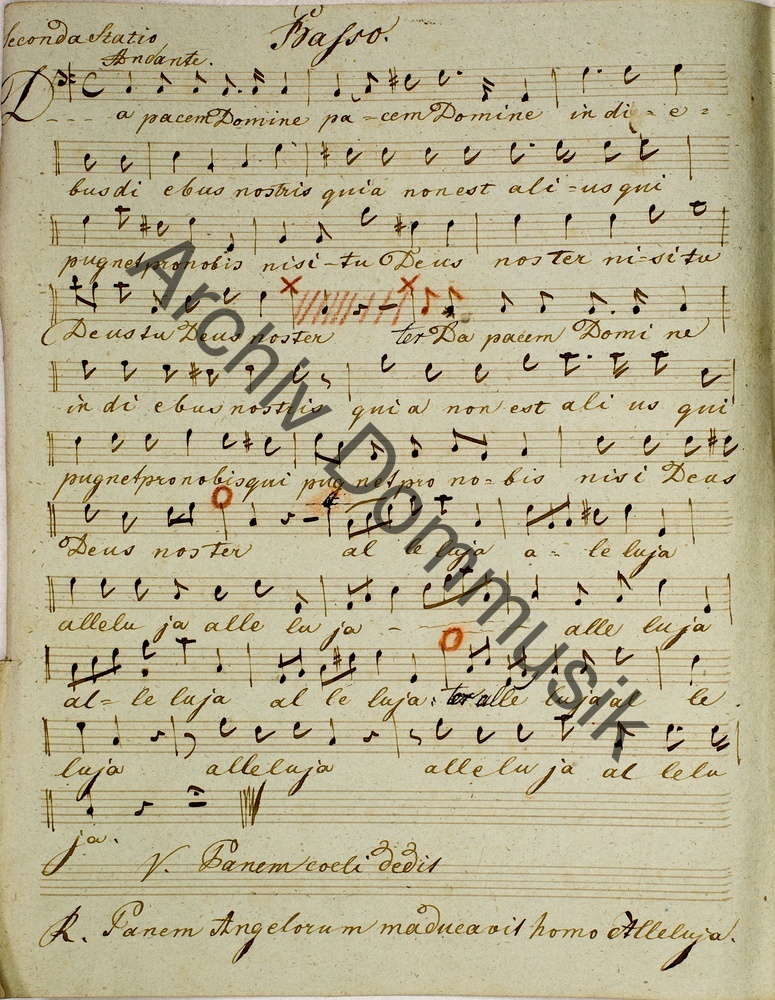 Seconda Statio
Basso.
Andante.
Da pacem Domine pa-cem Domine in di-e-
bus di ebus nostris quia non est ali-us qui
pugnet pro nobis nisi-tu Deus noster ni-si tu
Deus tu Deus noster ter Da pacem Domi ne
in di ebus nostris qui a non est ali us qui
pugnet pro nobis qui pug net pro no-bis nisi Deus
Deus noster al le luja a-le luja
allelu ja alle lu ja - alle luja
al-le luja al le luja: ter alle luja al le
luja alleluja allelu ja al lelu
ja.
V. Panem coeli dedis
R. Panem Angelorum maducavit homo Alleluja.
Archiv Dommusik